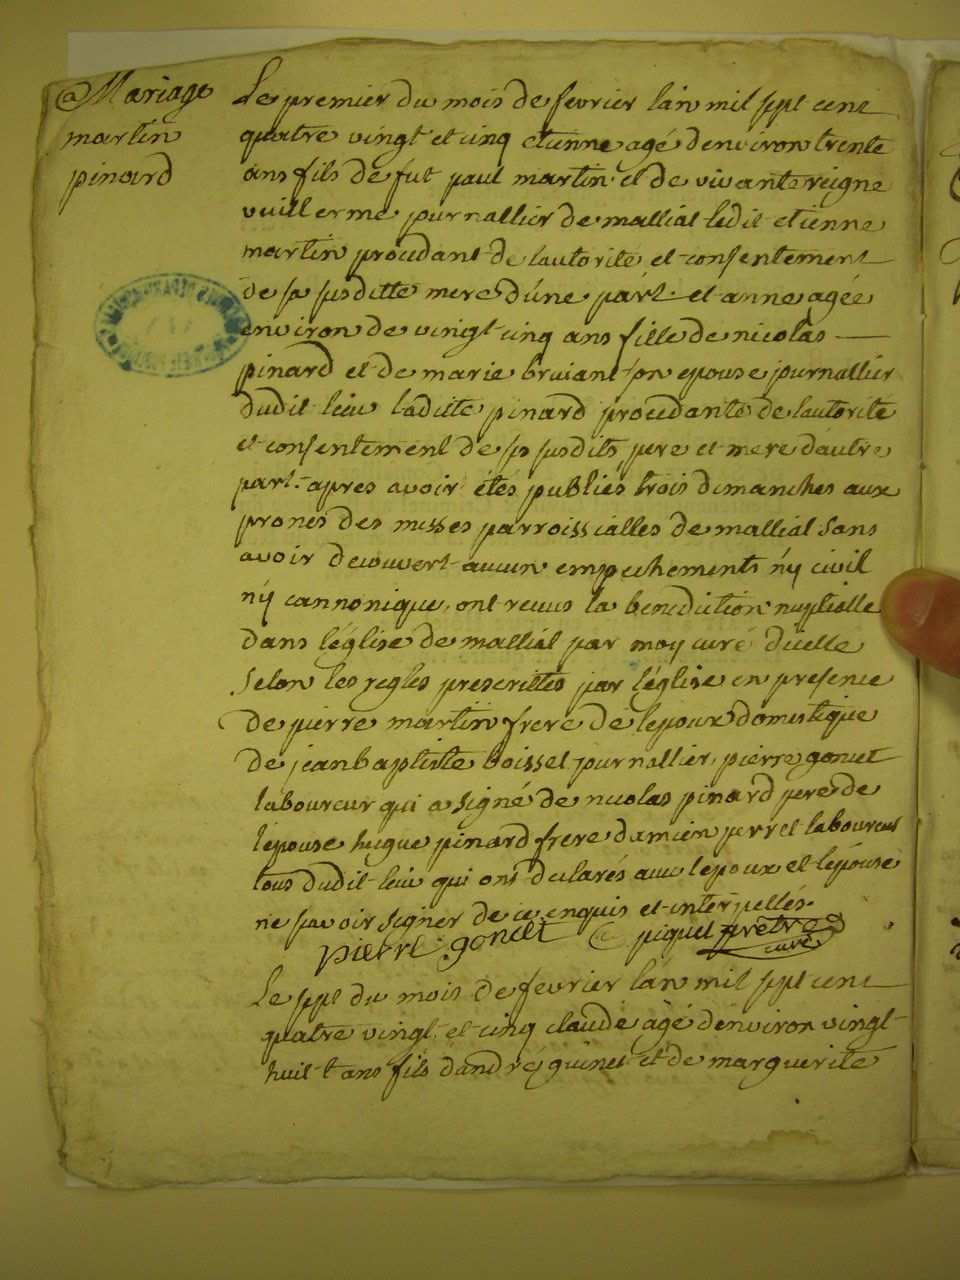 @ Mariage
martin
pinard
Le premier du mois de fevrier lan mil sept cent
quatre vingt et cinq etienne agé denviron trente
ans fils de fut paul martin et de vivante reigne
vuillerme journallier de mallial ledit etienne
martin procedant de lautorité et consentement
de sa susditte mere dúne part. et anne agée
environ de vingt cinq ans fille de nicolas
pinard et de marie bruiant son epouse journallier
dudit lieu laditte pinard procedante de lautorite
et consentement de ses susdits pere et mere dautre
part. apres avoir étés publiés trois dimanches aux
prones des messes parroissialles de mallial sans
avoir decouvert aucun empechements n'y civil
n'y cannonique, ont recus la benediction nuptialle
dans léglise de mallial par moy curé d'icelle
selon les regles prescrittes par léglise en presence
de pierre martin frere de lepoux domestique
de jeanbaptiste boisset journallier, pierre goncet
laboureur qui a signé de nicolas pinard pere de
lepouse hugue pinard frere damien perret laboureur
tous dudit lieu qui ont declarés avec lepoux et lépouse
ne savoir signer de ce enquis et interpellés.
pierre goncet piquet prètre
curé
Le sept du mois de fevrier lan mil sept cent
quatre vingt et cinq claude agé denviron vingt
huit ans fils dandré guinet et de marguerite